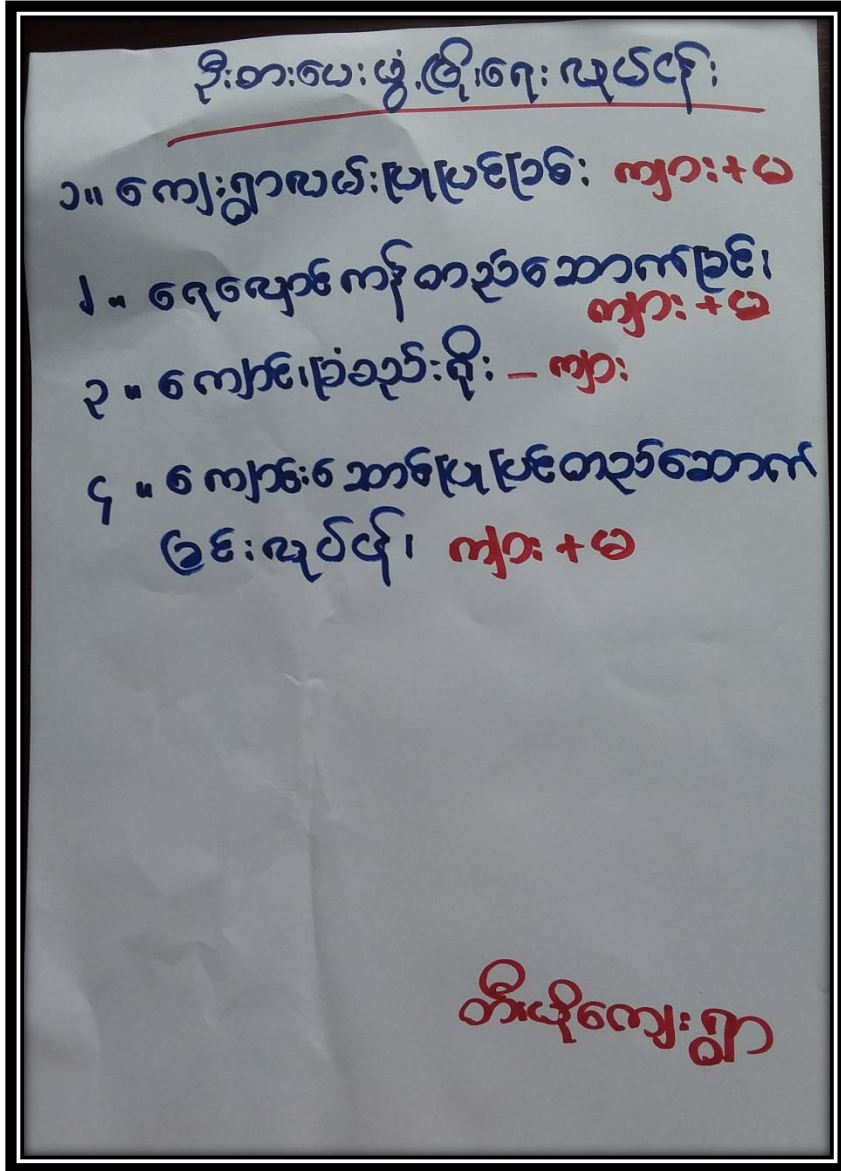 ဦးစားပေးဖွံ့ဖြိုးရေးလုပ်ငန်း
၁။ ကျေးရွာလမ်းပြုပြင်ခြင်း ကျား+မ
၂။ ရေလှောင်ကန်တည်ဆောက်ခြင်း
ကျား+မ
၃။ ကျောင်းခြံစည်းရိုး - ကျား
၄။ ကျောင်းဆောင်ပြုပြင်တည်ဆောက်
ခြင်းလုပ်ငန်း ကျား+မ
တီးယိုကျေးရွာ